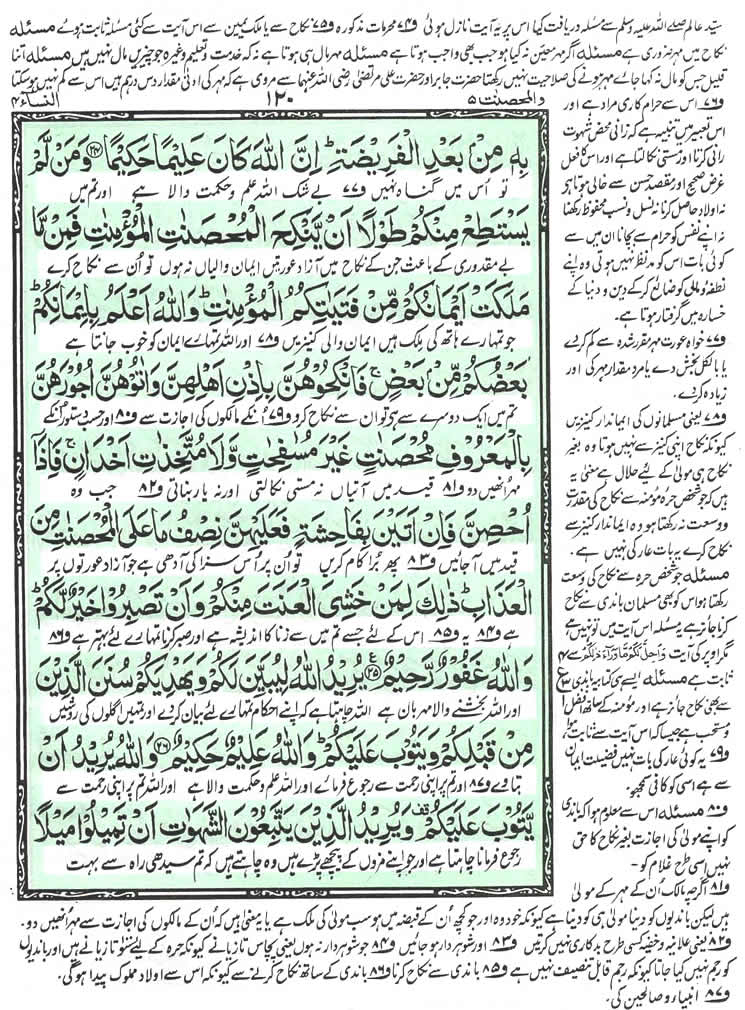 سیّد عالم صلے اللہ علیہ وسلم سے مسئلہ دریافت کیا اس پر یہ آیت نازل ہوئی و۷۴ محرمات مذکورہ و۷۵ نکاح سے یا ملک یمین سے اس آیت سے کئی مسئلہ ثابت ہوئے مسئلہ
نکاح میں مہر ضروری ہے مسئلہ اگر مہر معیّن نہ کیا ہو جب بھی واجب ہوتا ہے مسئلہ مہر مال ہی ہوتا ہے نہ کہ خدمت و تعلیم وغیرہ جو چیزیں مال نہیں ہیں مسئلہ اتنا
قلیل جس کو مال نہ کہا جائے مہر ہونے کی صلاحیت نہیں رکھتا حضرت جابر اور حضرت علی مرتضیٰ رضی اللہ عنہما سے مروی ہے کہ مہر کی ادنیٰ مقدار دس درہم ہیں اس سے کم نہیں ہو سکتا
والمحصنٰت ۵
۱۲۰
النساء ۴
بِهٖ مِنْۢ بَعْدِ الْفَرِیْضَةِؕ اِنَّ اللّٰهَ كَانَ عَلِیْمًا حَكِیْمًا ﴿۲۴﴾ وَ مَنْ لَّمْ
تو اُس میں گناہ نہیں و۷۷ بے شک اللہ علم و حکمت والا ہے اور تم میں
یَسْتَطِعْ مِنْكُمْ طَوْلًا اَنْ یَّنْكِحَ الْمُحْصَنٰتِ الْمُؤْمِنٰتِ فَمِنْ مَّا
بے مقدوری کے باعث جن کے نکاح میں آزاد عورتیں ایمان والیاں نہ ہوں تو اُن سے نکاح کرے
مَلَكَتْ اَیْمَانُكُمْ مِّنْ فَتَیٰتِكُمُ الْمُؤْمِنٰتِؕ وَ اللّٰهُ اَعْلَمُ بِاِیْمَانِكُمْؕ
جو تمہارے ہاتھ کی ملک ہیں ایمان والی کنیزیں و۷۸ اور اللہ تمہارے ایمان کو خوب جانتا ہے
بَعْضُكُمْ مِّنْۢ بَعْضٍۚ فَانْكِحُوْهُنَّ بِاِذْنِ اَهْلِهِنَّ وَ اٰتُوْهُنَّ اُجُوْرَهُنَّ
تم میں ایک دوسرے سے ہے تو ان سے نکاح کرو و۷۹ اُنکے مالکوں کی اجازت سے و۸۰ اور حسب دستور اُنکے
بِالْمَعْرُوْفِ مُحْصَنٰتٍ غَیْرَ مُسٰفِحٰتٍ وَّ لَا مُتَّخِذٰتِ اَخْدَانٍۚ فَاِذَاۤ
مہر اُنھیں دو و۸۱ قید میں آتیاں نہ مستی نکالتی اور نہ یار بناتی و۸۲ جب وہ
اُحْصِنَّ فَاِنْ اَتَیْنَ بِفَاحِشَةٍ فَعَلَیْهِنَّ نِصْفُ مَا عَلَى الْمُحْصَنٰتِ مِنَ
قید میں آجائیں و۸۳ پھر بُرا کام کریں تو اُن پر اُس سزا کی آدھی ہے جو آزاد عورتوں پر
الْعَذَابِؕ ذٰلِكَ لِمَنْ خَشِیَ الْعَنَتَ مِنْكُمْؕ وَ اَنْ تَصْبِرُوْا خَیْرٌ لَّكُمْؕ
ہے و۸۴ یہ و۸۵ اس کے لئے جسے تم میں سے زنا کا اندیشہ ہے اور صبر کرنا تمہارے لئے بہتر ہے و۸۶
وَ اللّٰهُ غَفُوْرٌ رَّحِیْمٌ ﴿۲۵﴾ یُرِیْدُ اللّٰهُ لِیُبَیِّنَ لَكُمْ وَ یَهْدِیَكُمْ سُنَنَ الَّذِیْنَ
اور اللہ بخشنے والا مہربان ہے اللہ چاہتا ہے کہ اپنے احکام تمہارے لئے بیان کردے اور تمہیں اگلوں کی روشیں
مِنْ قَبْلِكُمْ وَ یَتُوْبَ عَلَیْكُمْؕ وَ اللّٰهُ عَلِیْمٌ حَكِیْمٌ ﴿۲۶﴾ وَ اللّٰهُ یُرِیْدُ اَنْ
بتاوے و۸۷ اور تم پر اپنی رحمت سے رجوع فرمائے اور اللہ علم و حکمت والا ہے اور اللہ تم پر اپنی رحمت سے
یَّتُوْبَ عَلَیْكُمْ وَ یُرِیْدُ الَّذِیْنَ یَتَّبِعُوْنَ الشَّهَوٰتِ اَنْ تَمِیْلُوْا مَیْلًا
رجوع فرمانا چاہتا ہے اور جو اپنے مزوں کے پیچھے پڑے ہیں وہ چاہتے ہیں کہ تم سیدھی راہ سے بہت
و۷۶ اس سے حرام کاری مراد ہے اور
اس تعبیر میں تنبیہ ہے کہ زانی محض شہوت
رانی کرتا اور مستی نکالتا ہے اور اس کا فعل
غرض صحیح اور مقصد حسن سے خالی ہوتا ہے
نہ اولاد حاصل کرنا نہ نسل و نسب محفوظ رکھنا
نہ اپنے نفس کو حرام سے بچانا ان میں سے
کوئی بات اس کو مد نظر نہیں ہوتی وہ اپنے
نطفہ و مال کو ضائع کرکے دین و دنیا کے
خسارہ میں گرفتار ہوتا ہے۔
و۷۷ خواہ عورت مہر مقرر شدہ سے کم کردے
یا بالکل بخش دے یا مرد مقدار مہر کی اور
زیادہ کردے۔
و۷۸ یعنی مسلمانوں کی ایماندار کنیزیں
کیونکہ نکاح اپنی کنیز سے نہیں ہوتا وہ بغیر
نکاح ہی مولیٰ کے لئے حلال ہے معنی یہ
ہیں کہ جو شخص حرہ مؤمنہ سے نکاح کی مقدرت
و وسعت نہ رکھتا ہو وہ ایماندار کنیز سے
نکاح کرے یہ بات عار کی نہیں ہے۔
مسئلہ جو شخص حرہ سے نکاح کی وسعت
رکھتا ہو اس کو بھی مسلمان باندی سے نکاح
کرنا جائز ہے یہ مسئلہ اس آیت میں تو نہیں ہے
مگر اوپر کی آیت وَاُحِلَّ لَكُمْ مَّا وَرَآءَ ذٰلِكُمْ سے
ثابت ہے مسئلہ ایسے ہی کتابیہ باندی
سے بھی نکاح جائز ہے اور مؤمنہ کے ساتھ افضل
و مستحب ہے جیسا کہ اس آیت سے ثابت ہوا
و۷۹ یہ کوئی عار کی بات نہیں فضیلت ایمان
سے ہے اسی کو کافی سمجھو۔
و۸۰ مسئلہ اس سے معلوم ہوا کہ باندی
کو اپنے مولیٰ کی اجازت بغیر نکاح کا حق
نہیں اسی طرح غلام کو۔
و۸۱ اگرچہ مالک اُن کے مہر کے مولیٰ
ہیں لیکن باندیوں کو دینا مولیٰ ہی کو دینا ہے کیونکہ خود وہ اور جو کچھ اُن کے قبضہ میں ہو سب مولیٰ کی ملک ہے یا یہ معنی ہیں کہ اُن کے مالکوں کی اجازت سے مہر انھیں دو۔
و۸۲ یعنی علانیہ و خفیہ کسی طرح بدکاری نہیں کرتیں و۸۳ اور شوہر دار ہو جائیں و۸۴ جو شوہر دار نہ ہوں یعنی پچاس تازیانے کیونکہ حرہ کے لئے سو تازیانے ہیں اور باندیوں
کو رجم نہیں کیا جاتا کیونکہ رجم قابل تنصیف نہیں ہے و۸۵ باندی سے نکاح کرنا و۸۶ باندی کے ساتھ نکاح کرنے سے کیونکہ اس سے اولاد مملوک پیدا ہوگی۔
و۸۷ انبیاء و صالحین کی۔